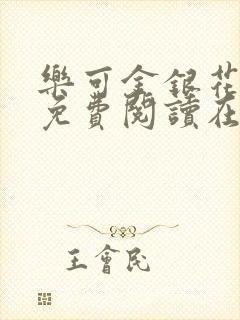 樂可金銀花
免費閱讀在
王會民